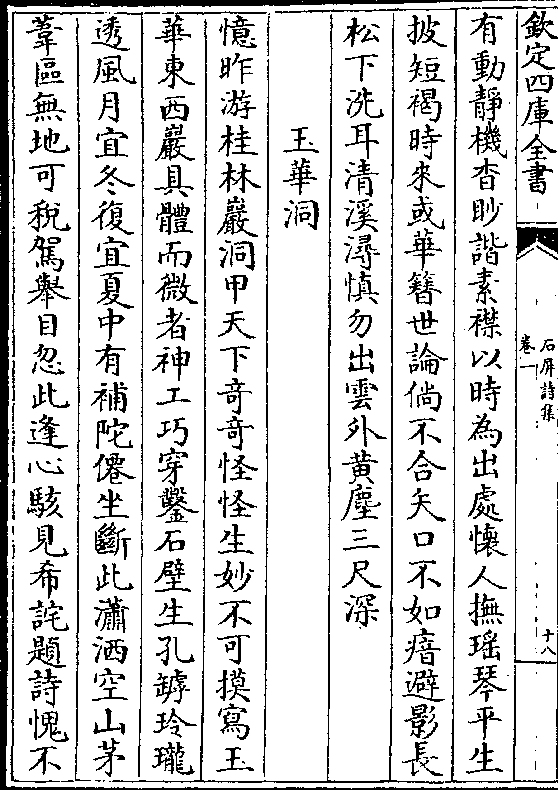 欽定四庫全書
石屏詩集
卷一
十八
有動靜機杳眇諧素襟以時為出處懷人撫瑤琴平生
披短褐時來或華簪世論倘不合矢口不如瘖避影長
松下洗耳清溪潯慎勿出雲外黃塵三尺深
玉華洞
憶昨游桂林巖洞甲天下奇奇怪怪生妙不可摸寫玉
華東西巖具體而微者神工巧穿鑿石壁生孔罅玲瓏
透風月宜冬復宜夏中有補陀僊坐斷此瀟洒空山茅
葦區無地可稅駕舉目忽此逢心駭見希詫題詩愧不